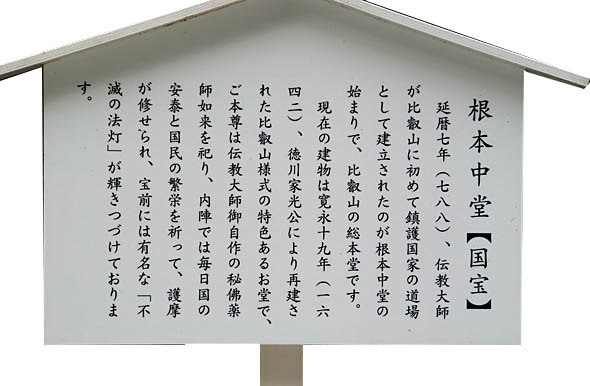 根本中堂【国宝】
延暦七年（七八八）、伝教大師
が比叡山に初めて鎮護国家の道場
として建立されたのが根本中堂の
始まりで、比叡山の総本堂です。
現在の建物は寛永十九年（一六
四二）、徳川家光公により再建さ
れた比叡山様式の特色あるお堂で、
ご本尊は伝教大師御自作の秘佛薬
師如来を祀り、内陣では毎日国の
安泰と国民の繁栄を祈って、護摩
が修せられ、宝前には有名な「不
滅の法灯」が輝きつづけておりま
す。